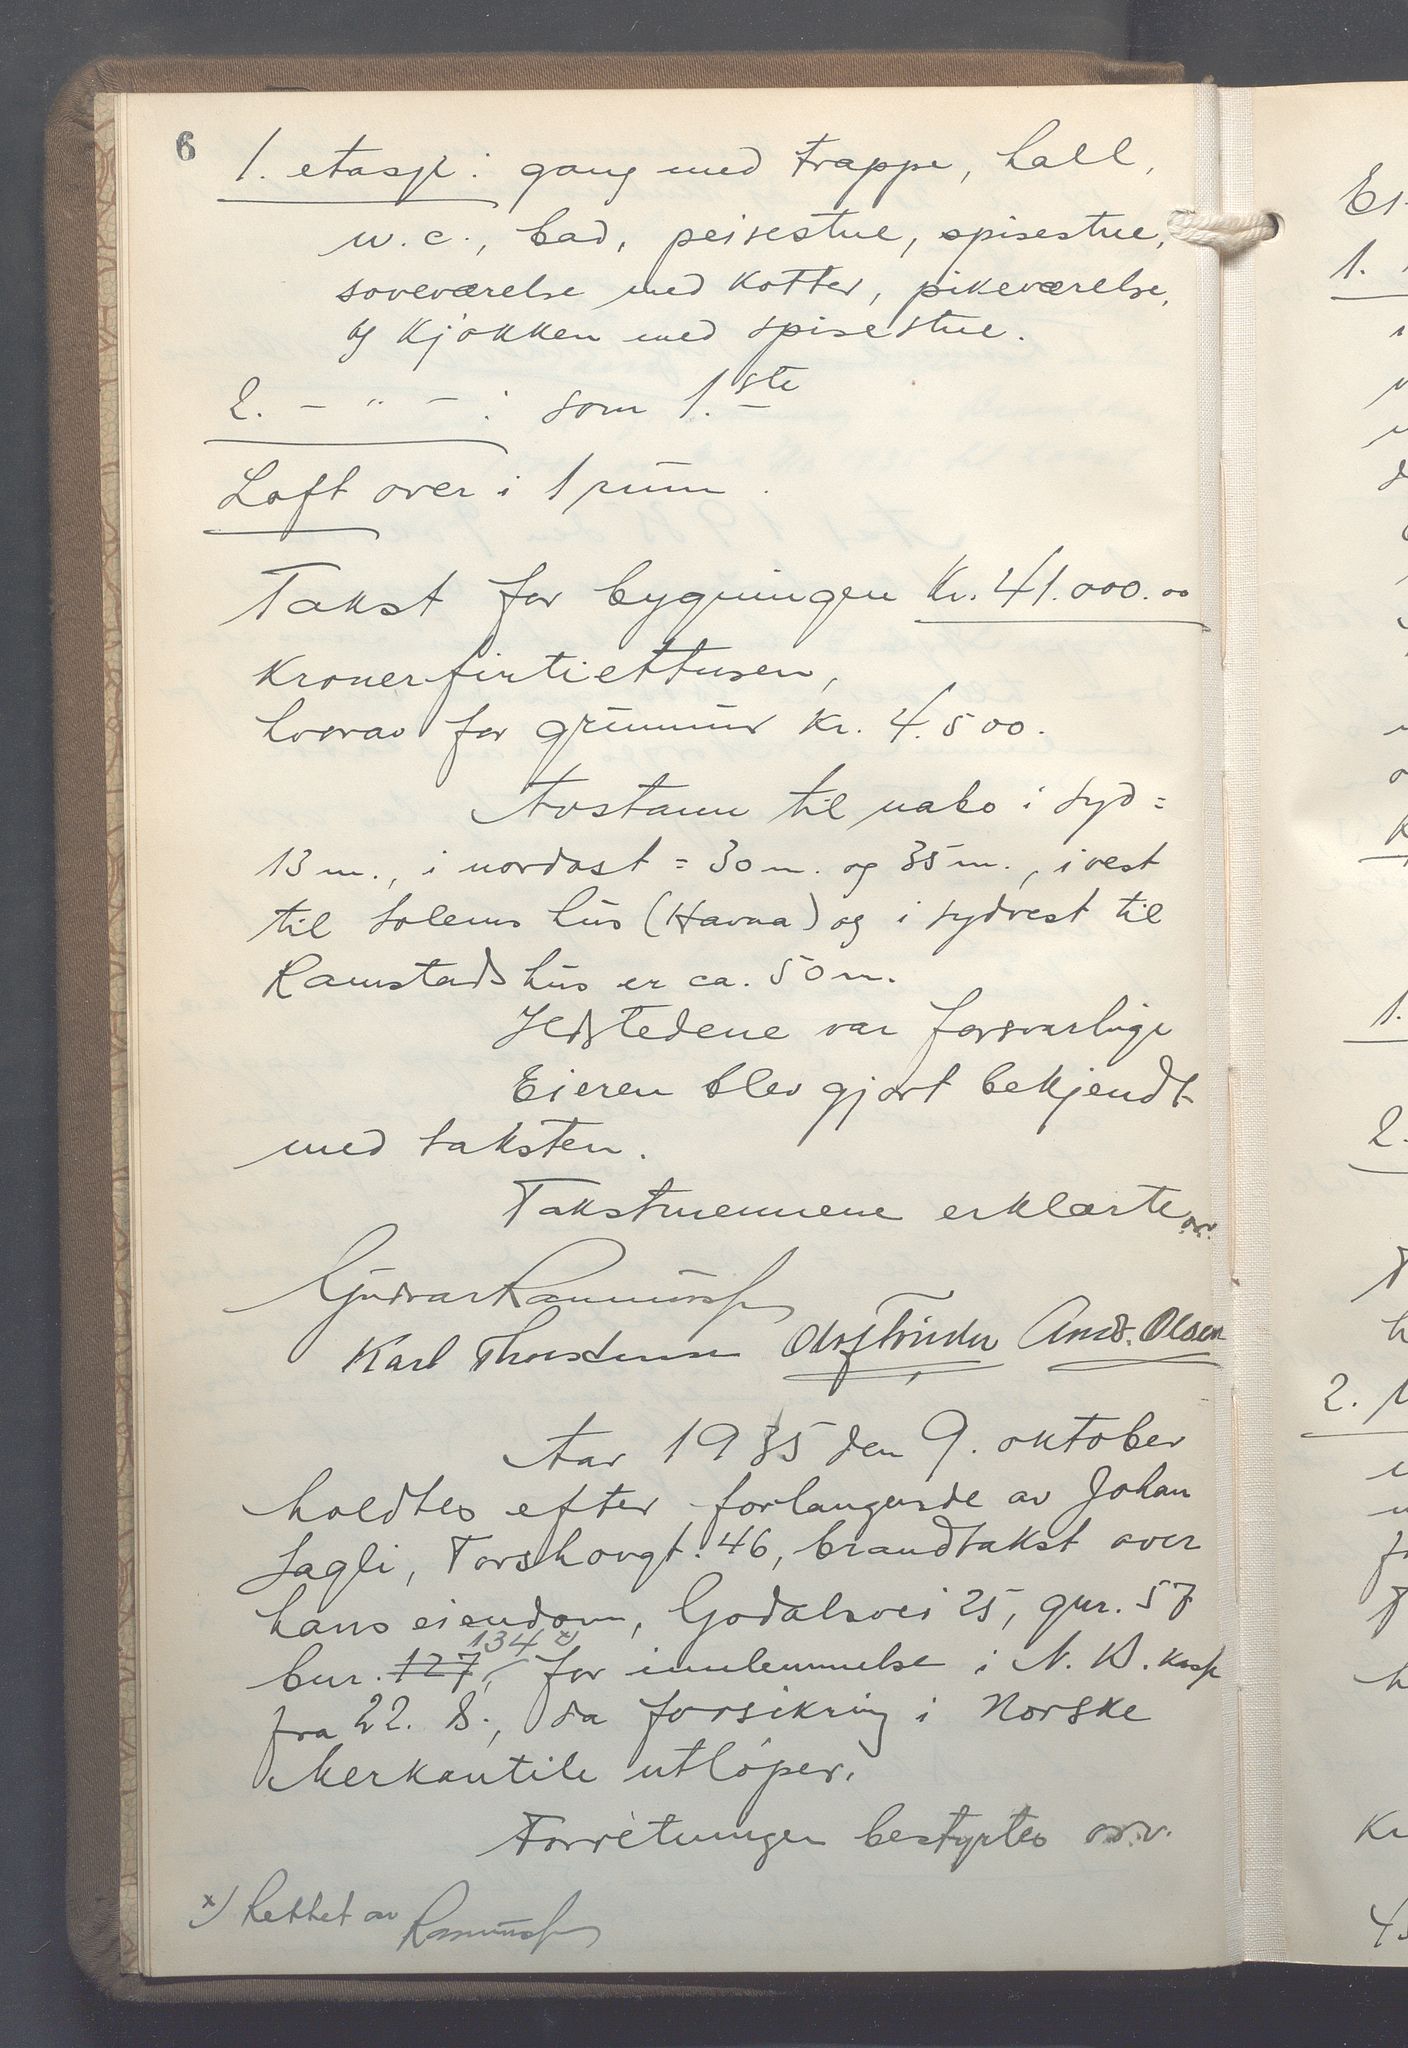 6
1. etasje: gang med trappe, hall,
w.c., bad, peisestue, spisestue,
soveværelse med kotter, pikeværelse,
og kjøkken med spisestue.
2. - " - : som 1.ste
Loft over i 1 rum.
Takst for bygningen Kr. 41.000.00
kroner firtiettusen,
hvorav for grunmur kr. 4.500.
Avstann til nabo i syd =
13 m., i nordøst = 30 m. og 35 m., i vest
til Solems hus (Havna) og i sydvest til
Ramstads hus er ca. 50 m.
Ildstedene var forsvarlige
Eieren blev gjort bekjendt
med taksten.
Takstmennene erklærte osv.
Karl Thorstensen Olaf Andr. Olsen
Aar 1935 den 9. oktober
holdtes efter forlangende av Johan
Sagli, Torshovgt. 46, brandtakst over
hans eiendom, Godalsvei 25, gnr. 57
134 x)
bnr. 127, for innlemmelse i N. B. kasse
fra 22. 8., da forsikring i Norske
Merkantile utløper.
Forretningen bestyrtes osv.
x) Rettet av
Er
1.
1.
2.
2.
Kr